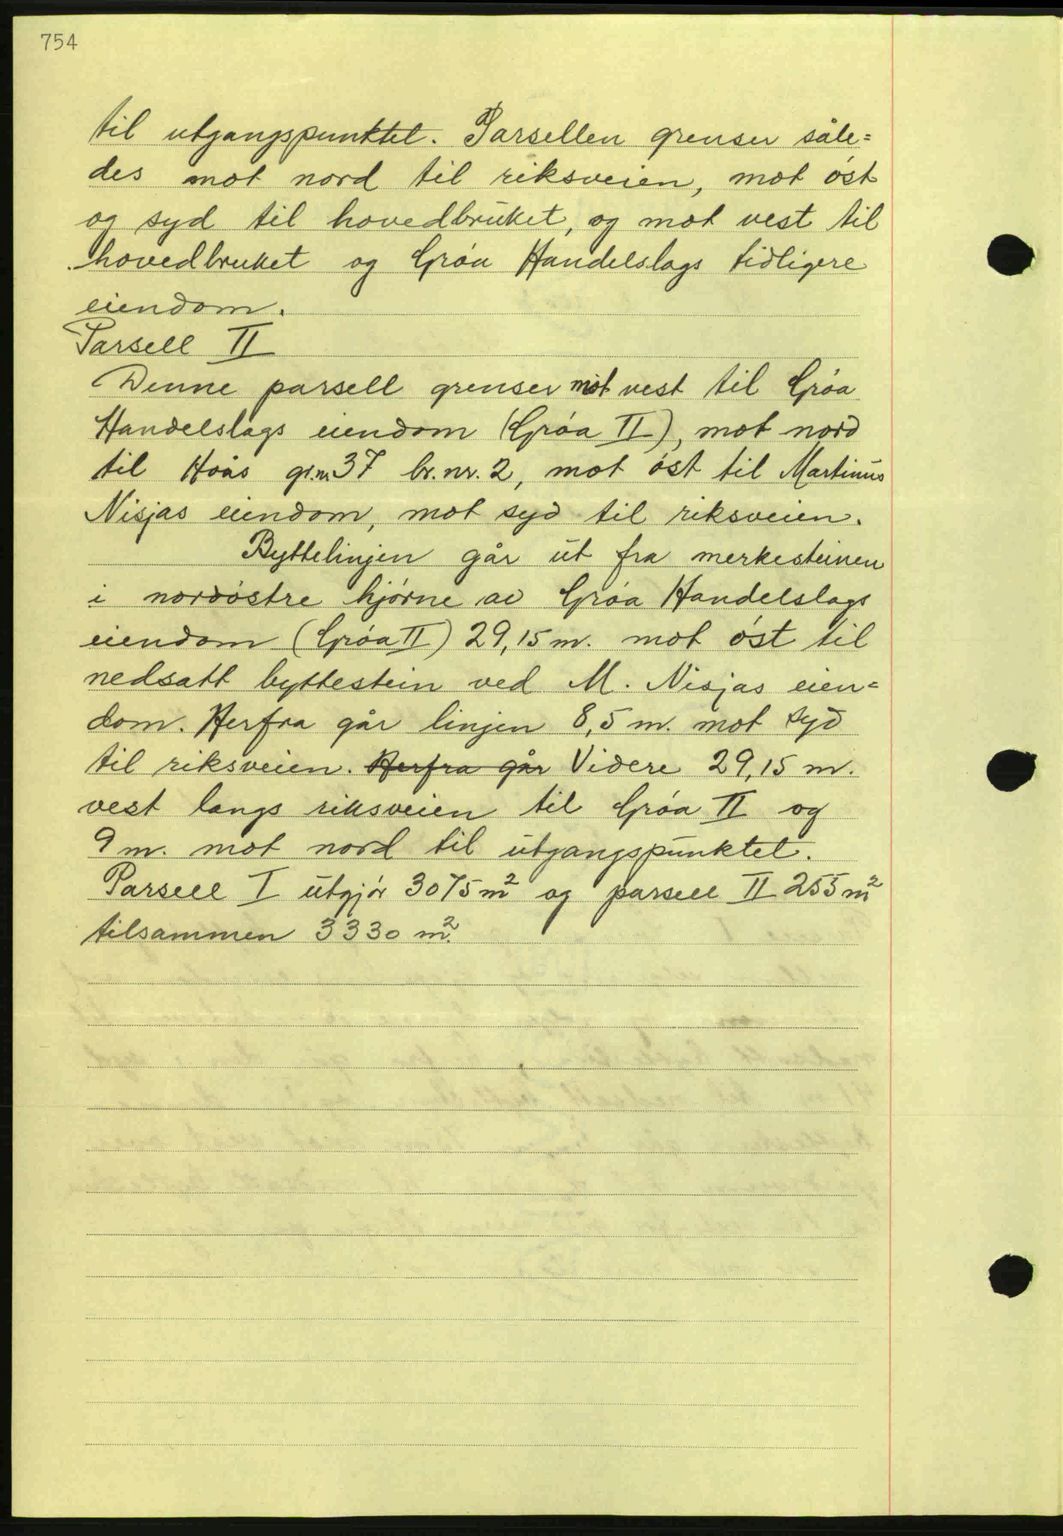 754
til utgangspunktet. Parsellen grenser såle=
des mot nord til riksveien, mot øst
og syd til hovedbruket, og mot vest til
hovedbruket og Grøa Handelslags tidligere
eiendom.
Parsell II
Denne parsell grenser mot vest til Grøa
Handelslags eiendom (Grøa II), mot nord
til Hoås gr.nr. 37 br. nr. 2, mot øst til Martinus
Nisjas eiendom, mot syd til riksveien.
Byttelinjen går ut fra merkesteinen
i nordøstre hjørne av Grøa Handelslags
eiendom (Grøa II) 29,15 m. mot øst til
nedsatt byttestein ved M. Nisjas eien=
dom. Herfra går linjen 8,5 m. mot syd
til riksveien. Herfra går Videre 29,15 m.
vest langs riksveien til Grøa II og
9 m. mot nord til utgangspunktet.
Parsell I utgjør 3075 m² og parsell II 255 m²
tilsammen 3330 m².